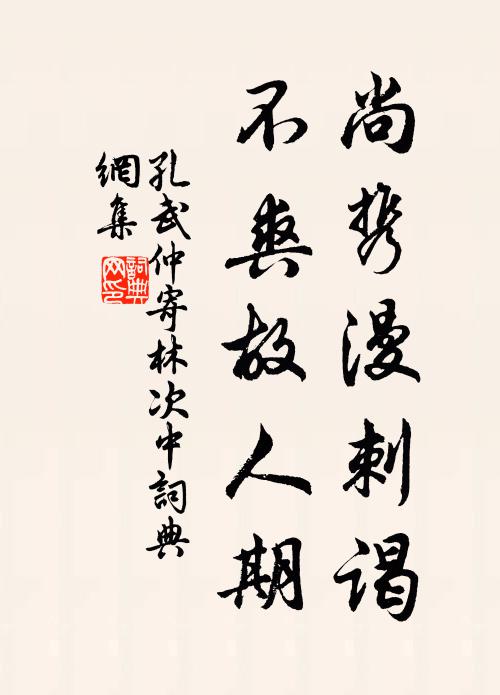 尚携漫刺谒
不爽故人期
孔武仲寄林次中詞典
網集
詞典网印